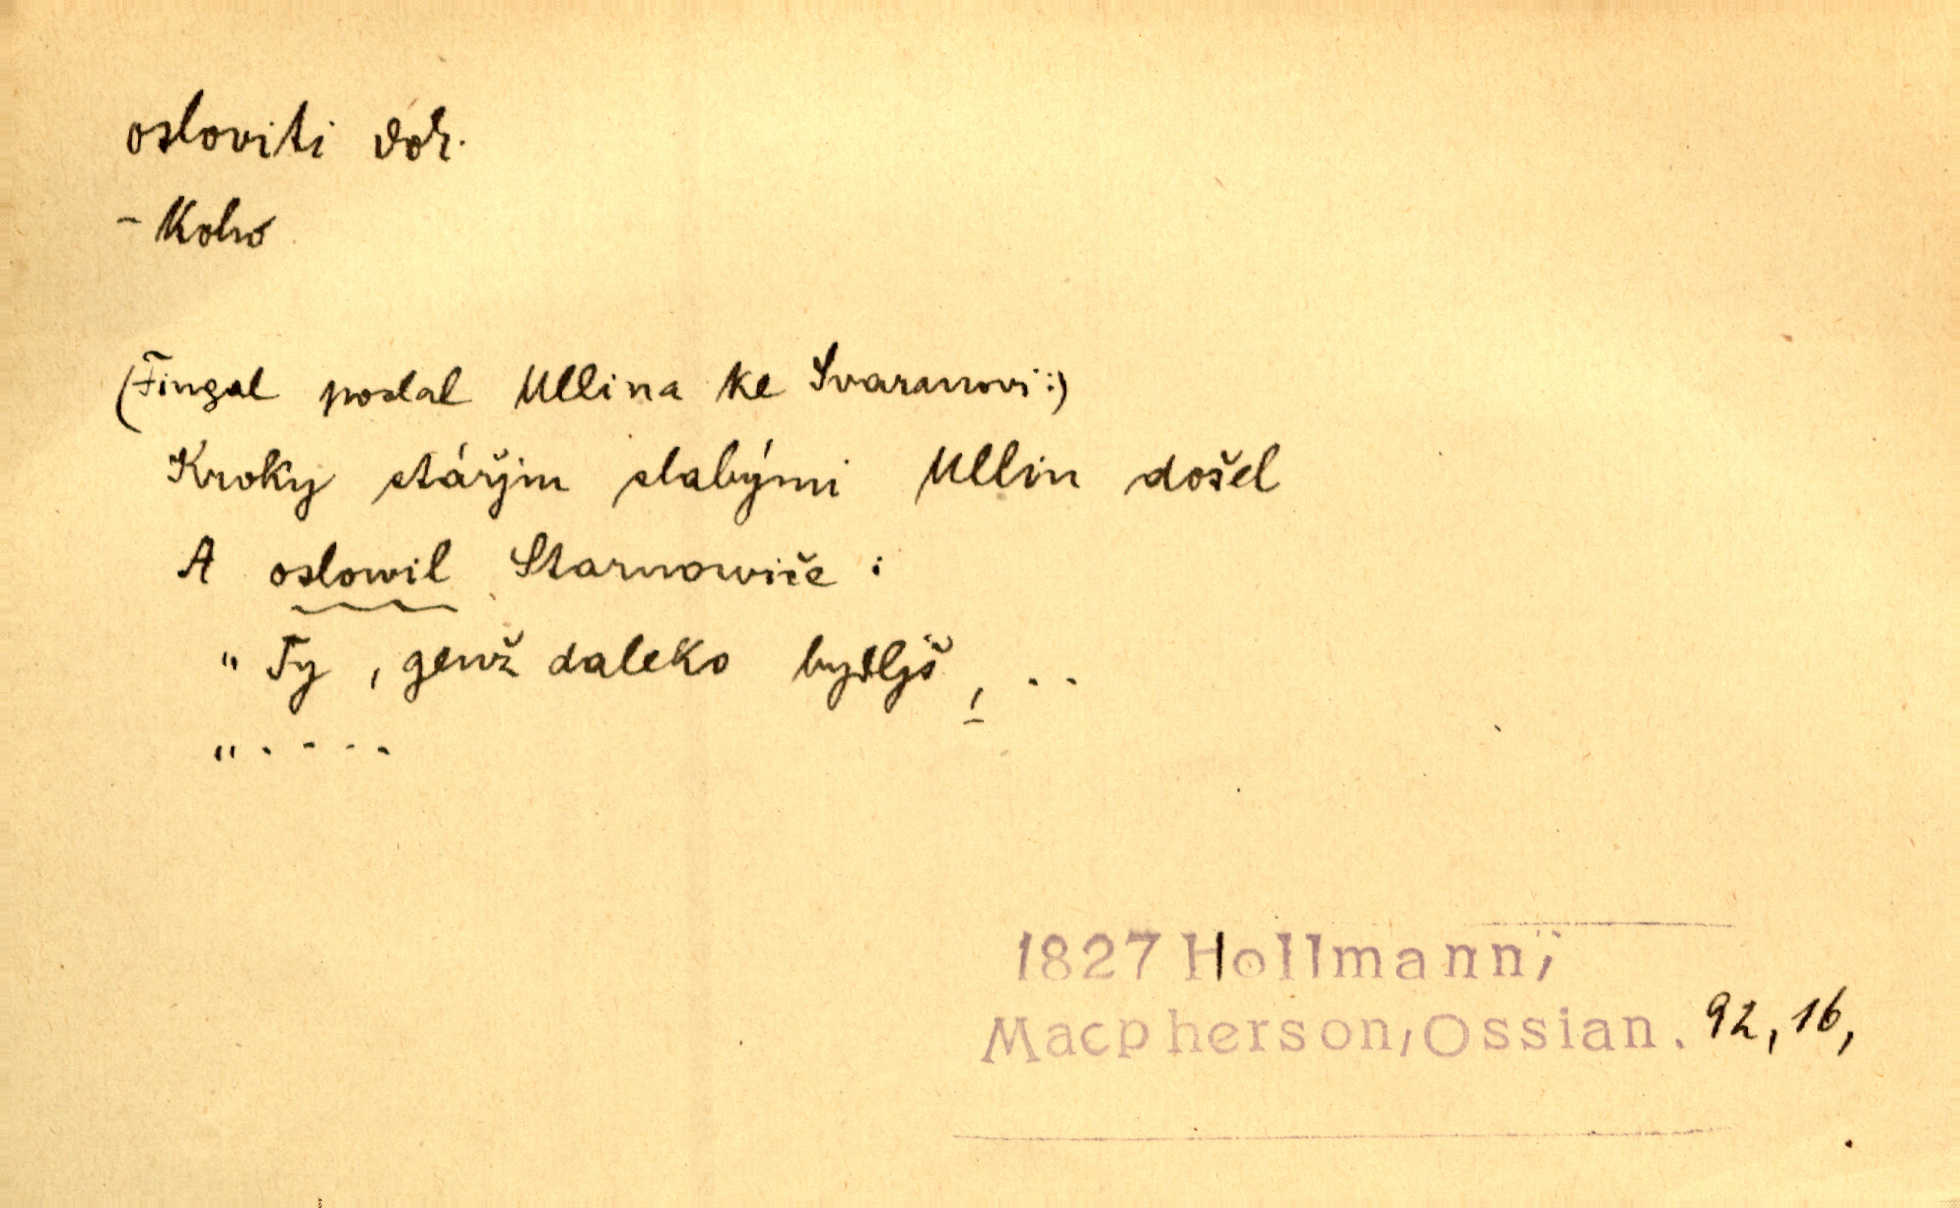 osloviti dok.
- Koho
(Fingal poslal Ullina ke Svaranovi:)
Kroky stářjm slabými Ullin došel
A oslowil Starnowiče :
" Ty , genž daleko bydljš , . .
" . - - .
1827 Hollmann;
Macpherson, Ossian. 92, 16,